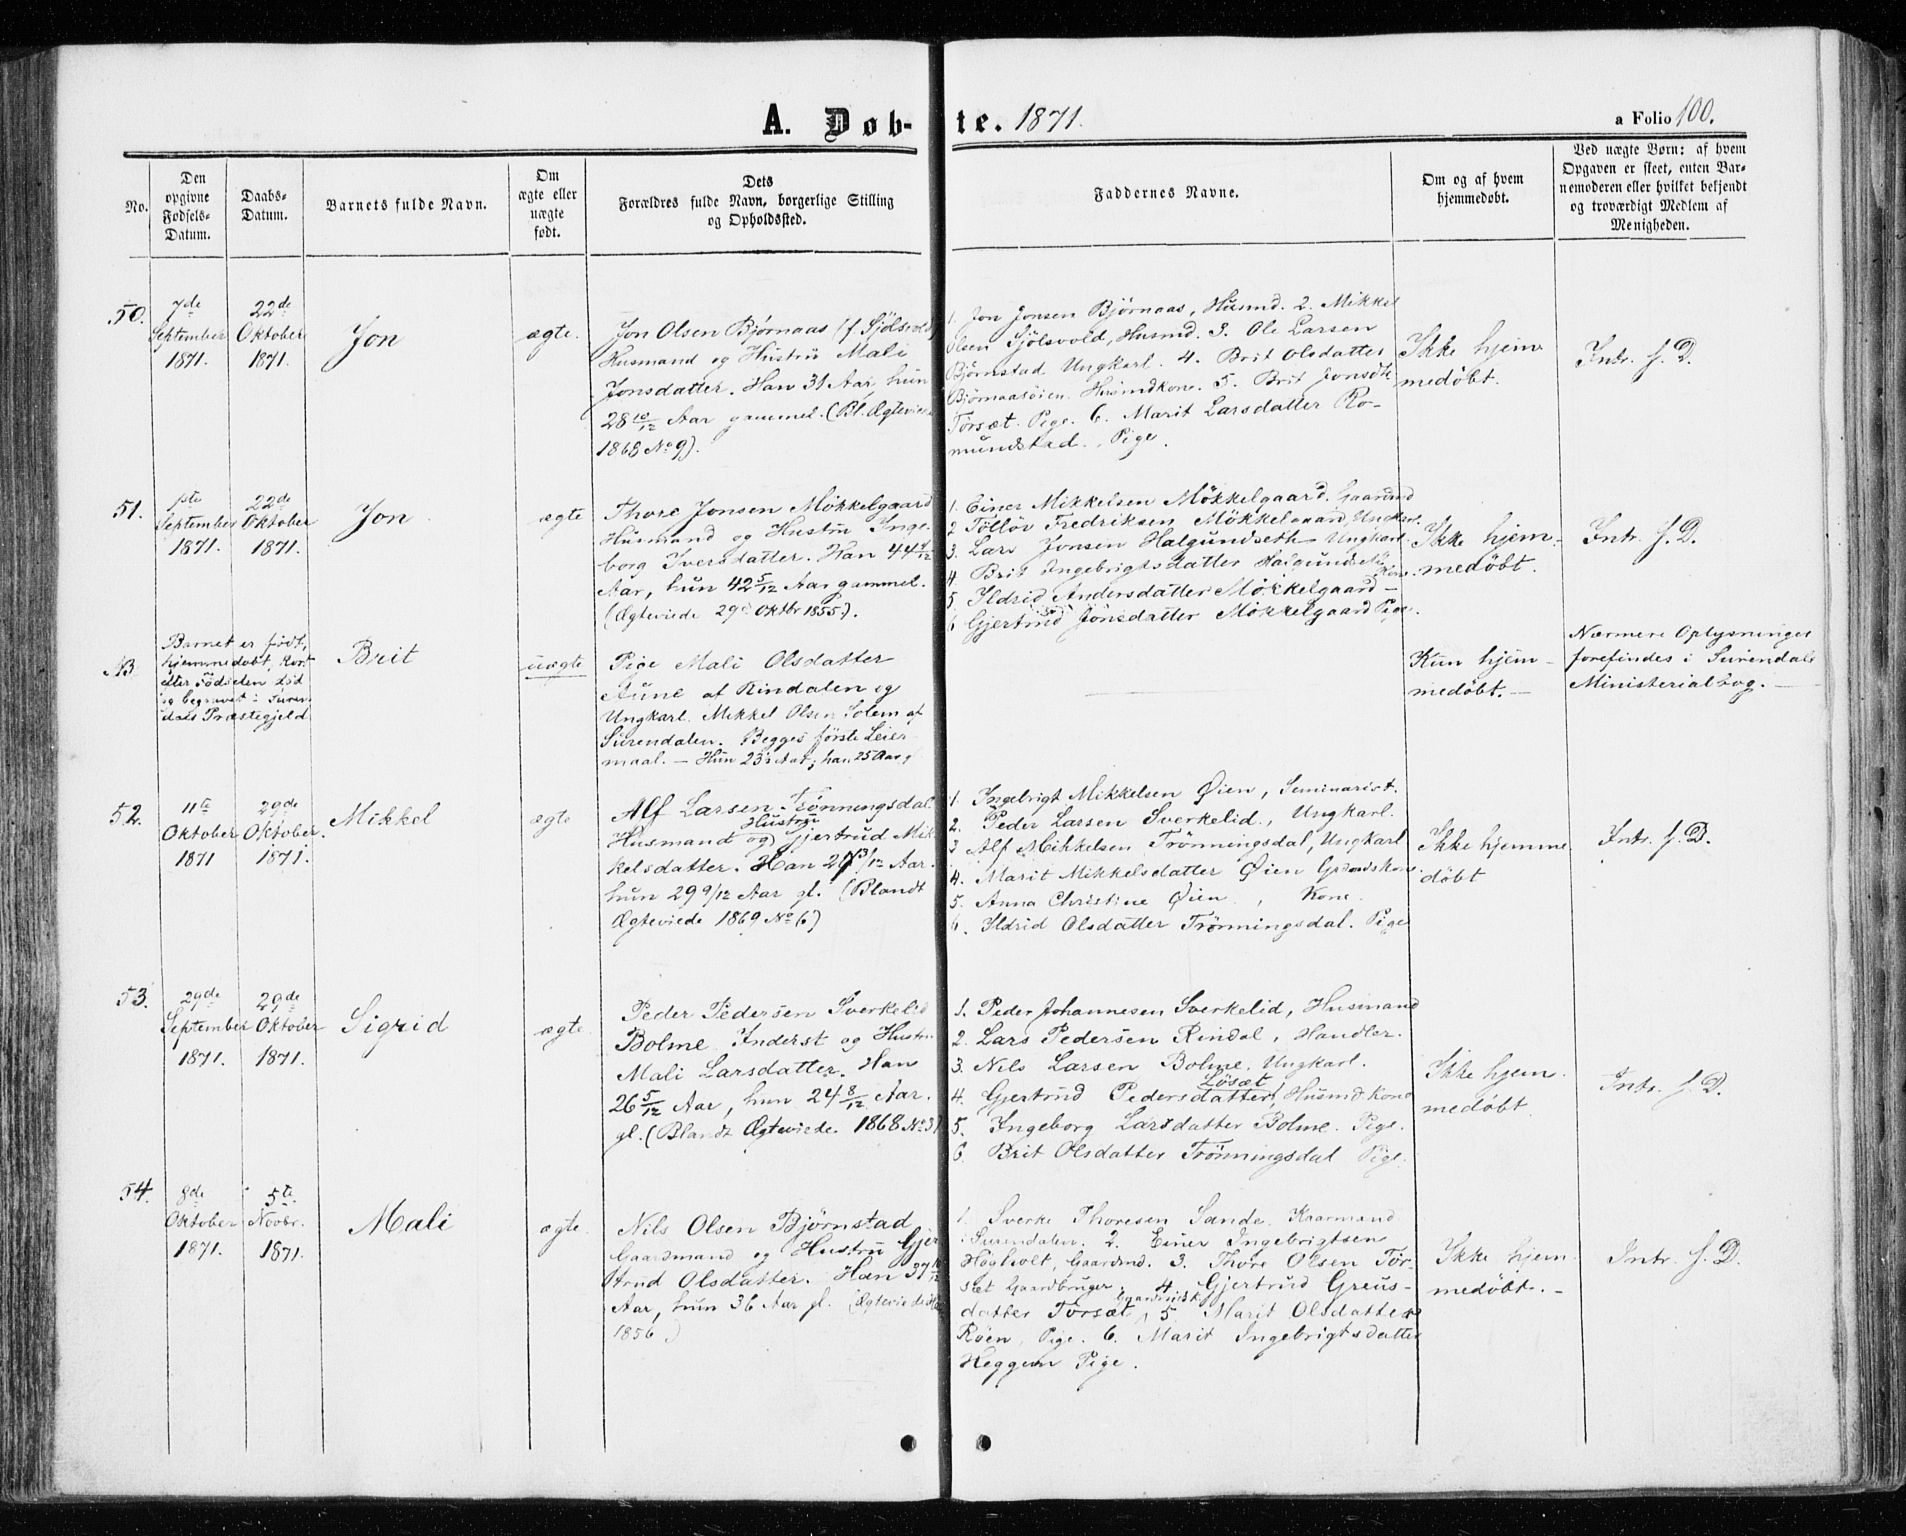 A. Døb-te. 1871.
a Folio 100.
No.
Den
opgivne
Fødsels-
Datum.
Daabs-
Datum.
Barnets fulde Navn.
Om
ægte eller
uægte
født.
Dets
Forældres fulde Navn, borgerlige Stilling
og Opholdssted.
Faddernes Navne.
Om og af hvem
hjemmedøbt.
Ved uægte Børn: af hvem
Opgaven er skeet, enten Bar-
nemoderen eller hvilket bekjendt
og troværdigt Medlem af
Menigheden.
50.
7de
September
1871.
22de
Oktober
1871.
Jon
ægte.
Jon Olsen Bjørnaas (f. Sjølsvold)
Husmand og Hustru Mali
Jonsdatter. Han 31 Aar, hun
28 10/12 Aar gammel. (Bl. Ægteviede
1868 No 9).
1. Jon Jonsen Bjørnaas, Husmd. 2. Mikkel
Olsen Sjølsvold, Husmd. 3. Ole Larsen
Bjørnstad Ungkarl. 4. Brit Olsdatter
Bjørnaasøien. Husmdkone. 5. Brit Jonsdtr.
Torsæt. Pige. 6. Marit Larsdatter Ro-
mundstad. Pige.
Ikke hjem
medøbt.
Intr. f. D.
51.
1ste
September
1871.
22de
Oktober
1871.
Jon
ægte
Thore Jonsen Møkkelgaard
Husmand og Hustru Inge-
borg Iversdatter. Han 44 4/12
Aar, hun 42 5/12 Aar gammel.
(Ægteviede 29de Oktbr 1855.).
1. Einer Mikkelsen Møkkelgaard. Gaarmd
2 Tølløv Fredriksen Møkkelgaard Ungkarl.
3. Lars Jonsen Halgundseth Ungkarl
4. Brit Ingebrigtsdatter Halgundseth Kone.
5 Ildrid Andersdatter Møkkelgaard —
6 Gjertrud Jonsdatter Møkkelgaard Pige.
Ikke hjem-
medøbt.
Intr. f. D.
NB
Barnet er født,
hjemmedøbt, kort
efter Fødselen død
og begravet i Suren-
dals Præstegjeld
Brit
uægte
Pige Mali Olsdatter
Aune af Rindalen og
Ungkarl Mikkel Olsen Solem af
Surendalen. Begges første Leier
maal. — Hun 23 Aar; han 25 Aar g.
Kun hjem-
medøbt. —
Nærmere Oplysninger
forefindes i Surendals
Ministerialbog. —
52.
11te
Oktober
1871
29de
Oktober.
1871.
Mikkel
ægte
Alf Larsen Trønningsdal.
Husmand og Hustru Gjertrud Mik
kelsdatter. Han 27 3/12 Aar.
hun 29 9/12 Aar gl. (Blandt
Ægteviede 1869 No 6)
1. Ingebrigt Mikkelsen Øien, Seminarist.
2. Peder Larsen Sverkelid., Ungkarl.
3 Alf Mikkelsen Trønningsdal, Ungkarl
4. Marit Mikkelsdatter Øien Grdmdskone.
5. Anna Christine Øien, Kone.
6. Ildrid Olsdatter Trønningsdal. Pige
Ikke hjemme
døbt
Intr. f. D.
53.
29de
September
1871.
29de
Oktober
1871.
Sigrid
ægte.
Peder Pedersen Sverkelid
Bolme Inderst og Hustru
Mali Larsdatter. Han
26 5/12 Aar, hun 24 8/12 Aar.
gl. (Blandt Ægteviede. 1868 No 3)
1. Peder Johannesen Sverkelid, Husmand
2. Lars Pedersen Rindal, Handler.
3. Nils Larsen Bolme. Ungkarl.
4. Gjertrud Pedersdatter Løsæt, Husmd. Kone
5. Ingeborg Larsdatter Bolme. Pige.
6. Brit Olsdatter Trønningsdal Pige.
Ikke hjem
medøbt.
Intr. f. D.
54.
8de
Oktober
1871.
5te
Novbr.
1871.
Mali
ægte.
Nils Olsen Bjørnstad
Gaardmand og Hustru Gjer
trud Olsdatter. Han 37 10/12
Aar, hun 36 Aar gl. (Ægteviede
1856)
1. Sverke Thoresen Sande. Kaarmand
Surendalen. 2. Einer Ingebrigtsen
Høgholt, Gaardmd. 3. Thore Olsen Tor-
sæt Gaardbruger. 4 Gjertrud Greus-
datter Torsæt, 5. Marit Olsdatter
Røen, Pige. 6. Marit Ingebrigtsdatter
Heggem Pige.
Ikke hjem
medøbt. —
Intr. f. D.